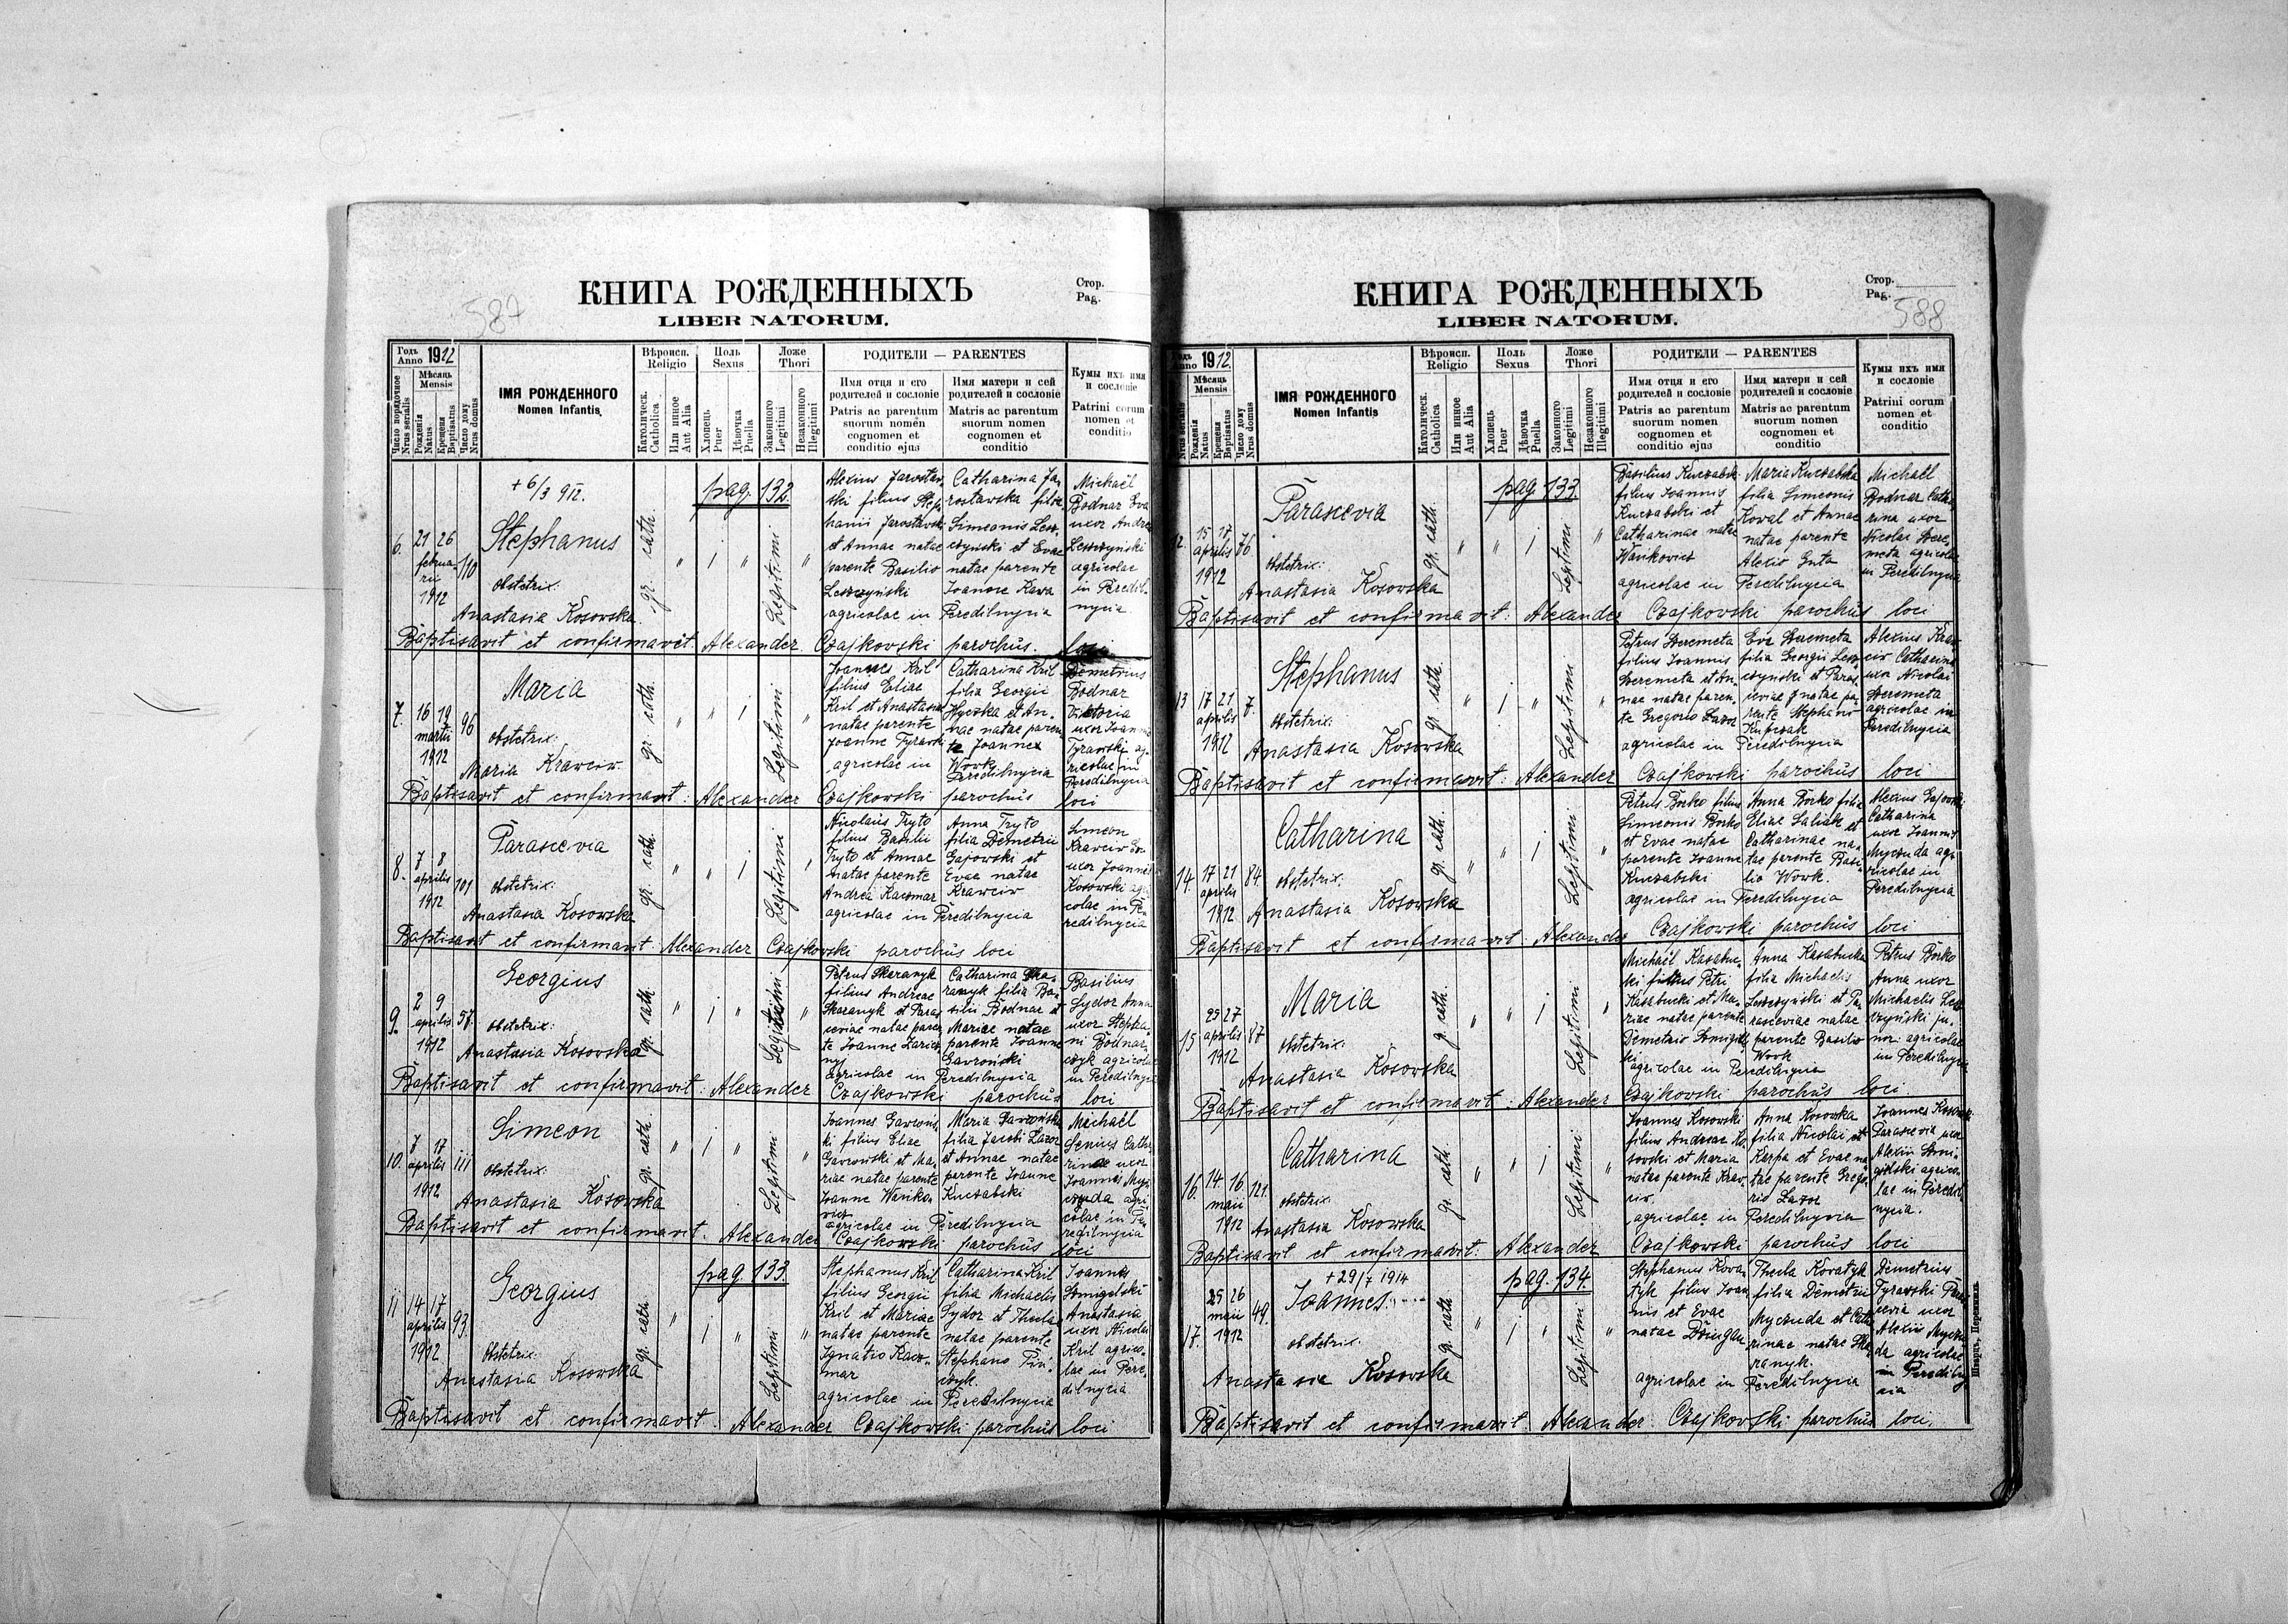 587
КНИГА РОЖДЕННЫХЪ
LIBER NATORUM.
Стор.
Pag.
Годъ
Anno 1912
Мѣсяць
Mensis
Число порядочное
Nrus serialis
Рожденія
Natus
Крещенія
Baptisatus
Число дому
Nrus domus
ІМЯ РОЖДЕННОГО
Nomen Infantis
Вѣроисп.
Religio
Католическ.
Catholica
Или инное
Aut Alia
Полъ
Sexus
Хлопець
Puer
Дѣвочка
Puella
Ложе
Thori
Законного
Legitimi
Незаконного
Illegitimi
РОДИТЕЛИ — PARENTES
Имя отця и его
родителей и сословіе
Patris ac parentum
suorum nomen
cognomen et
conditio ejus
Имя матери и сей
родителей и сословіе
Matris ac parentum
suorum nomen
cognomen et
conditio
Кумы ихъ имя
и сословіе
Patrini eorum
nomen et
conditio
6.
21 26
februa-
rii
1912
110
+ 6/3 912.
Stephanus
obstetrix:
Anastasia Kosowska
gr. cath.
" 1 "
Legitimi
"
pag. 132.
Alexius Jarosław-
ski filius Step-
hanii Jarosławski
et Annae natae
parente Basilio
Leszczyński
Catharina Ja-
rosławska filia
Simeonis Lesz-
czyński et Evae
natae parente
Joanne Kawa
agricolae in Peredilnycia
Michaël
Bodnar Eva
uxor Andrea
Leszczyński
agricolae
in Peredil-
nycia
Baptisavit et confirmavit: Alexander Czajkowski parochus loci
7.
16 19
martii
1912
96
Maria
obstetrix:
Maria Krawciw
gr. cath.
" " 1
Legitimi
"
Joannes Kril
filius Eliae
Kril et Anastasia
natae parente
Joanne Tyrawski
agricolae in
Catharina Kril
filia Georgii
Hyczka et An-
nae natae paren-
te Joanne
Wowk
Peredilnycia
Demetrius
Bodnar
Viktoria
uxor Joannis
Tyrawski ag-
ricolae in
Peredilnycia
Baptisavit et confirmavit: Alexander Czajkowski parochus loci
8.
7 8
aprilis
1912
101
Parascevia
obstetrix:
Anastasia Kosowska
gr. cath.
" " 1
Legitimi
"
Nicolaus Tryto
filius Basilii
Tryto et Annae
natae parente
Andrea Kaczmar
Anna Tryto
filia Demetrii
Gajowski et
Evae natae
Krawciw
agricolae in Peredilnycia
Simeon
Krawciw
uxor Joannis
Kosowski agri-
colae in Pe-
redilnycia
Baptisavit et confirmavit: Alexander Czajkowski parochus loci
9.
2 9
aprilis
1912
57.
Georgius
obstetrix:
Anastasia Kosowska
gr. cath.
" 1 "
Legitimi
"
Petrus Skaranyk
filius Andreae
Skaranyk et Paras-
ceviae natae paren-
te Joanne
Catharina Ska-
ranyk filia Ba-
silii Bodnar et
Mariae natae
parente Joanne
Gavroński
agricolae in Peredilnycia
Basilius
Sydor Anna
uxor Stepha-
ni Bodnar-
czyk agricolae
in Peredilnycia
Baptisavit et confirmavit: Alexander Czajkowski parochus loci
10.
7 17
aprilis
1912
111
Simeon
obstetrix:
Anastasia Kosowska
gr. cath.
" 1 "
Legitimi
"
Joannes Gawrons-
ki filius Eliae
Gavrowski et Ma-
riae natae parente
Joanne Wańko-
wicz
Maria Gawrońska
filia Jacobi Lazor
et Annae natae
parente Joanne
Kuczabski
agricolae in Peredilnycia
Michaël
Senius Catha-
rinae uxor
Joannes Myc-
czuda agri-
colae in Pe-
redilnycia
Baptisavit et confirmavit: Alexander Czajkowski parochus loci
11
14 17
aprilis
1912
93.
Georgius
obstetrix:
Anastasia Kosowska
gr. cath.
" 1 "
Legitimi
"
pag. 133.
Stephanus Kril
filius Georgii
Kril et Mariae
natae parente
Ignatio Kacz-
mar
Catharina Kril
filia Michaelis
Sydor et Theclae
natae parente
Stephano Pin-
czyk.
agricolae in Peredilnycia
Joannes
Smigelski
Anastasia
uxor Nicolai
Kril agrico-
lae in Pere-
dilnycia
Baptisavit et confirmavit: Alexander Czajkowski parochus loci
КНИГА РОЖДЕННЫХЪ
LIBER NATORUM.
Стор.
Pag.
588
Годъ
Anno 1912.
Мѣсяць
Mensis
Nrus serialis
Рожденія
Natus
Крещенія
Baptisatus
Число дому
Nrus domus
ІМЯ РОЖДЕННОГО
Nomen Infantis
Вѣроисп.
Religio
Католическ.
Catholica
Или инное
Aut Alia
Полъ
Sexus
Хлопець
Puer
Дѣвочка
Puella
Ложе
Thori
Законного
Legitimi
Незаконного
Illegitimi
РОДИТЕЛИ — PARENTES
Имя отця и его
родителей и сословіе
Patris ac parentum
suorum nomen
cognomen et
conditio ejus
Имя матери и сей
родителей и сословіе
Matris ac parentum
suorum nomen
cognomen et
conditio
Кумы ихъ имя
и сословіе
Patrini eorum
nomen et
conditio
12.
15 17
aprilis
1912
76
Parascevia
obstetrix:
Anastasia Kosowska
gr. cath.
" " 1
Legitimi
"
pag. 133.
Basilius Kuczabsk-
filius Joannis
Kuczabski et
Catharinae natae
Wańkowicz
Maria Kuczabska
filia Simeonis
Kowal et Annae
natae parente
Alexio Guta
agricolae in Peredilnycia
Michaël
Bodnar Catha-
rina uxor
Nicolai Dere-
meta agricolae
in Peredilnycia
Baptisavit et confirmavit: Alexander Czajkowski parochus loci
13
17 21
aprilis
1912
7.
Stephanus
obstetrix:
Anastasia Kosowska
gr. cath.
" 1 "
Legitimi
"
Petrus Deremeta
filius Joannis
Deremeta et An-
nae natae paren-
te Gregorio Lazor
Eva Deremeta
filia Georgii Lesz-
czyński et Paras-
ceviae natae pa-
rente Stephano
Kupczak
agricolae in Peredilnycia
Alexius Kraw-
ciw Catharina
uxor Nicolai
Deremeta
agricolae in
Peredilnycia
Baptisavit et confirmavit: Alexander Czajkowski parochus loci
14.
17 21
aprilis
1912
84.
Catharina
obstetrix:
Anastasia Kosowska
gr. cath.
" " 1
Legitimi
"
Petrus Borko filius
Simeonis Borko
et Evae natae
parente Joanne
Kuczabski
Anna Borko filia
Eliae Saliak et
Catharinae na-
tae parente Basi-
lio Wowk.
agricolae in Peredilnycia
Alexius Gajowski
Catharina
uxor Joannis
Myczuda agr-
ricolae in
Peredilnycia
Baptisavit et confirmavit: Alexander Czajkowski parochus loci
15
25 27
aprilis
1912
87
Maria
obstetrix:
Anastasia Kosowska
gr. cath.
" " 1
Legitimi
"
Michaël Kasabuc-
ki filius Petri
Kasabucki et Ma-
riae natae parente
Demetrio Smigels-
ki
Anna Kasabucka
filia Michaelis
Leszczyński et Pa-
rasceviae natae
parente Basilio
Wowk
agricolae in Peredilnycia
Petrus Borko
Anna uxor
Michaelis Lesz-
czyński ju-
nor: agricolae
in Peredilnycia
Baptisavit et confirmavit: Alexander Czajkowski parochus loci.
16.
14 16
maii
1912
121.
Catharina
obstetrix:
Anastasia Kosowska
gr. cath.
" " 1
Legitimi
"
Joannes Kosowski
filius Andreae Ko-
sowski et Maria
natae parente Kraw-
ciw.
Anna Kosowska
filia Nicolai et
Karpa et Evae na-
tae parente Grego-
rio Lazor
agricolae in Peredilnycia
Joannes Kosowski
Parascevia uxor
Alexii Smi-
gielski agrico-
lae in Peredil-
nycia.
Baptisavit et confirmavit: Alexander Czajkowski parochus loci
17.
25 26
maii
1912
49.
+ 29/7 1914
Joannes
obstetrix:
Anastasia Kosowska
gr. cath.
" 1 "
Legitimi
"
pag. 134.
Stephanus Kova-
tyk filius Joan-
nis et Evae
natae Dziugan
Thecla Kovatyk
filia Demetrii
Myczuda et Catha-
rinae natae Ska-
ranyk.
agricolae in Peredilnycia
Demetrius
Tyrawski Paras-
cevia uxor
Alexii Myczu-
da agricolae
in Peredilny-
cia
Baptisavit et confirmavit: Alexander Czajkowski parochus loci.